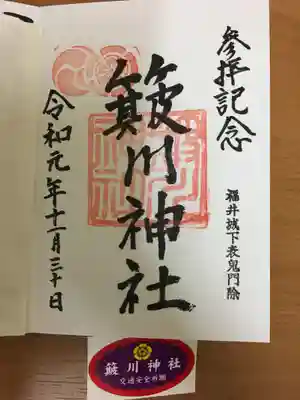 參拝記念
福井城下表鬼門除
簸川神社
令和元年十一月三十日
簸川神社
交通安全祈願